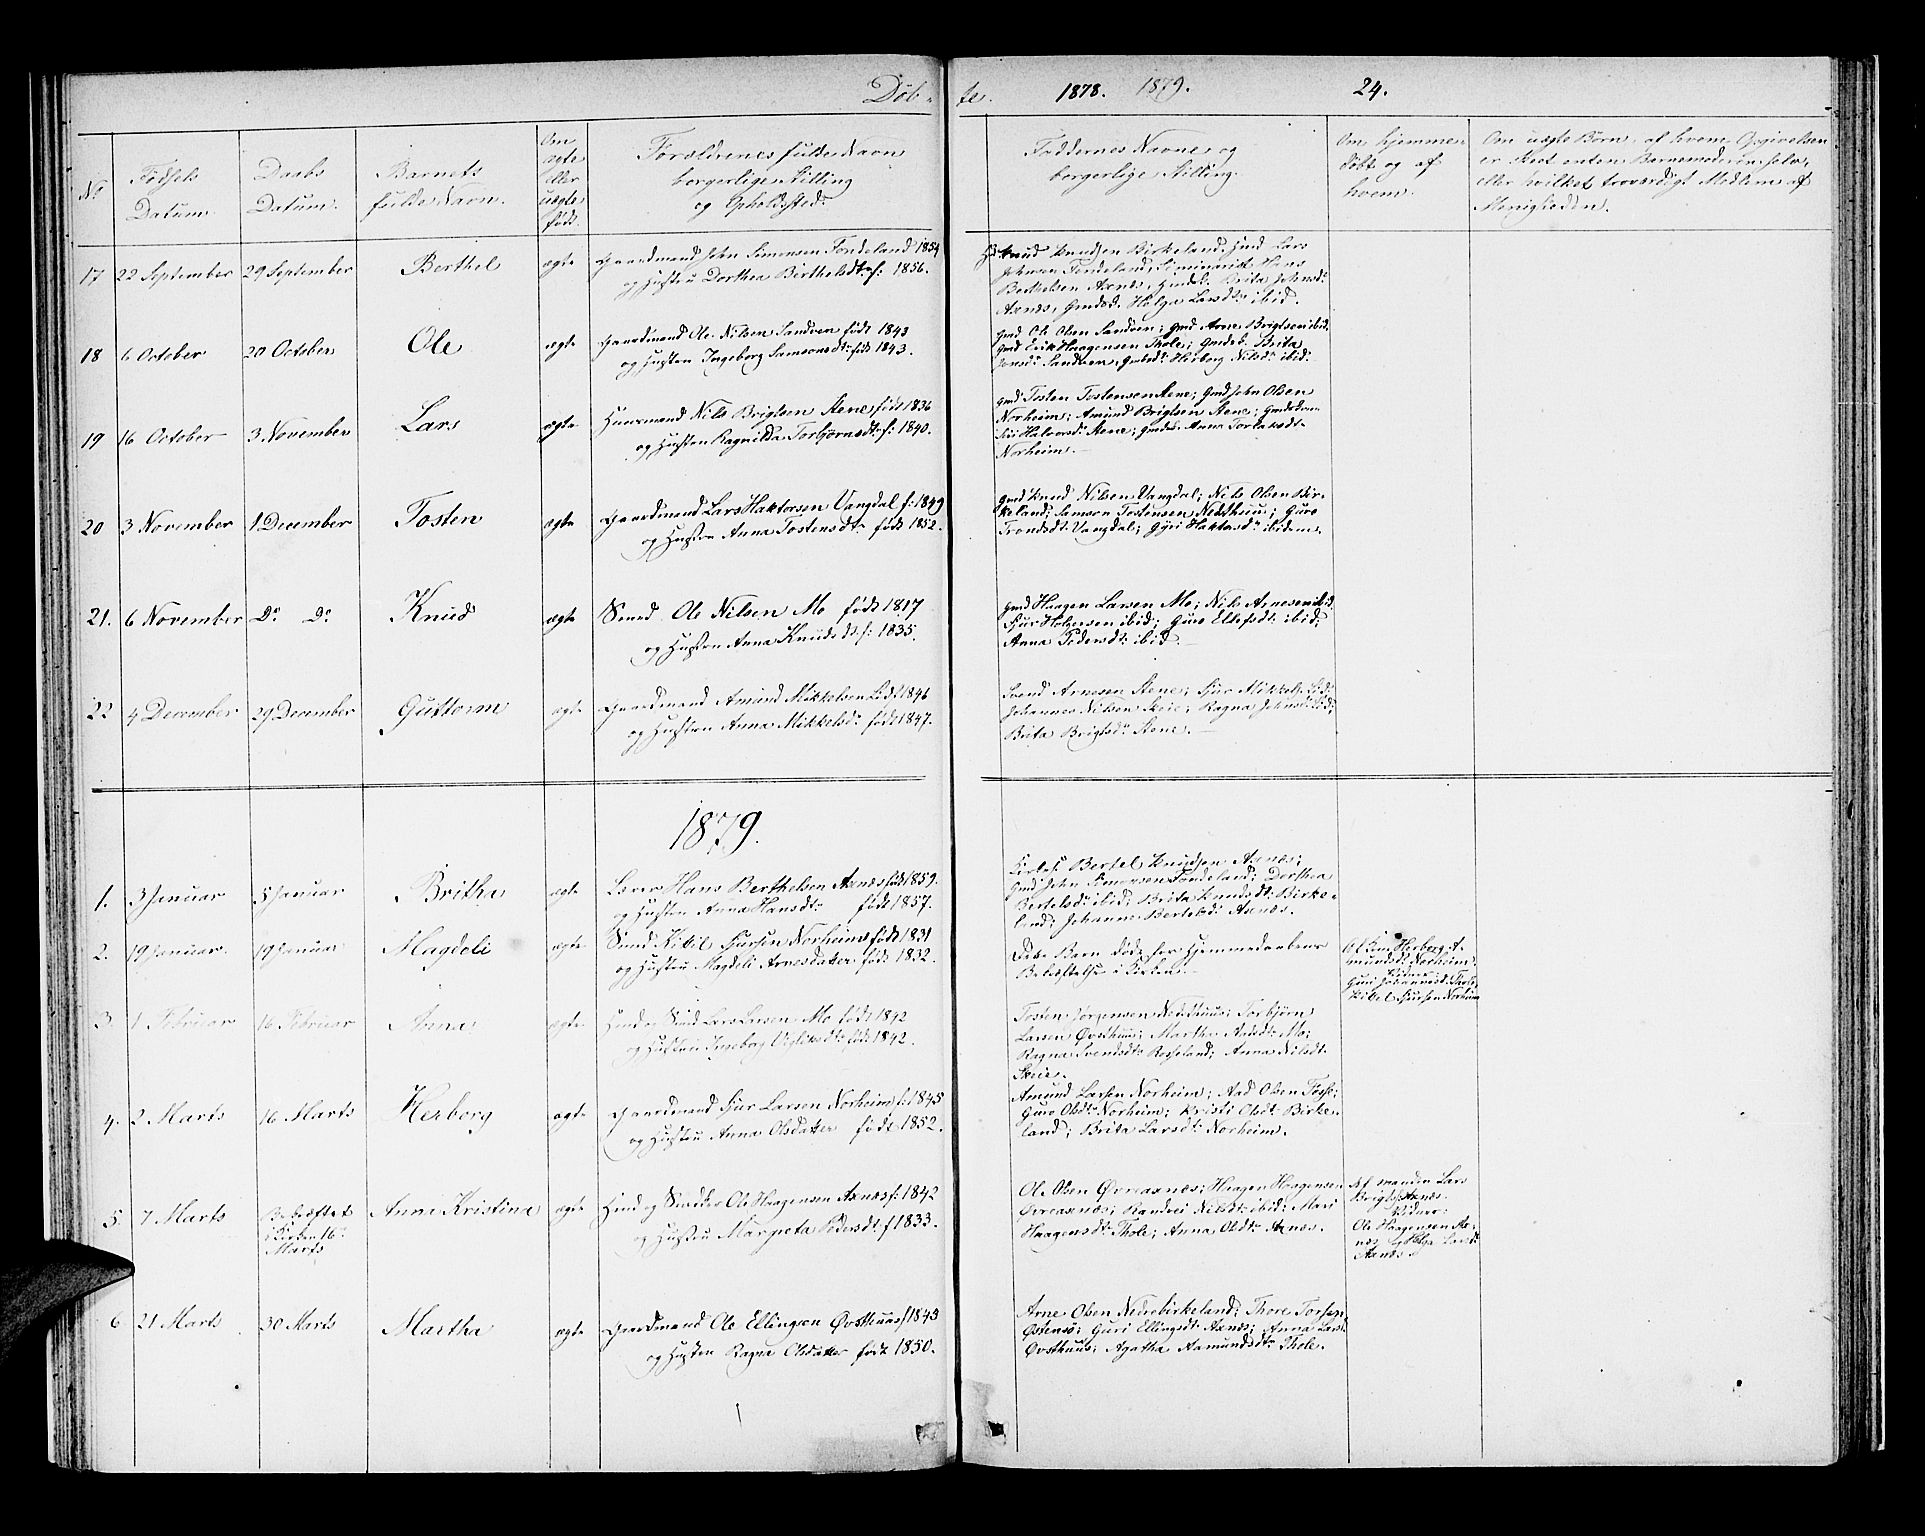 Döb-
te.
1878. 1879.
24.
No
Födsels
Datum.
Daabs
Datum.
Barnets
fulde Navn.
Om
ægte
eller
uægte
født.
Forældrenes fulde Navn
borgerlige Stilling
og Opholdssted.
Faddernes Navne og
borgerlige Stilling.
Om hjemme-
døbt og af
hvem.
Om uægte Børn, af hvem Opgivelsen
er skeet enten Barnemoderen selv,
eller hvilket troværdigt Medlem af
Menigheden.
17 22 September 29 September Berthel ægte Gaardmand John Simonsen Tondeland 1854
og Hustru Dorthea Birtheldsdtr f: 1856.
Knud Knudsen Birkeland, Lars
Johnsen Tondeland, Seminarist Hans
Berthelsen Axnes, Brita Johnsdr
Axnes, Helga Larsdtr ibid.
18 6 October 20 October Ole ægte Gaardmand Ole Nilsen Sandven født 1843
og Hustru Ingeborg Samsonsdtr født 1843.
Gmd Ole Olsen Sandven; Gmd Arne Brigtsen ibid.
Gmd Erik Haagensen Thole; Brita
Jonsdr Sandven, Herborg Nilsdr ibid.
19 16 October 3 November Lars ægte Huusmand Nils Brigtsen Stene født 1836
og Hustru Ragnilda Torbjørnsdtr f: 1840.
Gmd Tosten Tostensen Stene; Gmd John Olsen
Norheim; Amund Brigtsen Stene;
Siri Halvorsdr Stene; Anna Torlaksdtr
Norheim.
20 3 November 1 December Tosten ægte Gaardmand Lars Haktorsen Vangdal f: 1849
og Hustru Anna Tostensdtr født 1852.
Gmd Knud Nilsen Vangdal; Nils Olsen Bir-
keland; Samson Tostensen Nedsthuus; Guro
Trondsdtr Vangdal; Gyri Haktorsdr ibidem.
21. 6 November Do Do Knud ægte Smed Ole Nilsen Mo født 1817
og Hustru Anna Knudsdtr f: 1835.
Gmd Haagen Larsen Mo; Nils Arnesen ibid.
Sjur Helgesen ibid; Guro Ellefsdtr ibid;
Anna Pedersdtr ibid.
22 4 December 29 December Guttorm ægte Gaardmand Amund Mikkelsen født 1846
og Hustru Anna Mikkelsdr født 1847.
Svend Arnesen Stene; Sjur Mikkels.
Johannes Nilsen Skeie; Ragna Johnsdr
Brita Brigtsdr Stene.
1879.
1. 3 Januar 5 Januar Britha ægte Lærer Hans Berthelsen Axnes født 1859.
og Hustru Anna Hansdtr født 1857.
Kirkes. Bertel Knudsen Axnes;
Gmd John Simonsen Tondeland; Dorthea
Bertelsdr ibid; Brita Knudsdtr Birke-
land; Johanne Bertelsdr Axnes.
2. 19 Januar. 19 Januar Magdeli ægte Smed Kitil Sjursen Norheim født 1831
og Hustru Magdeli Arnesdatter født 1832.
Dette Barn døde før Hjemmedaabens
Bekræftelse i Kirken.
Af Herborg A-
mundsdr Norheim.
Vidner:
Guri Johannesd. Thole
Kitil Sjursen Norheim
3. 1 Februar 16 Februar Anna ægte Smed Lars Larsen Mo født 1842
og Hustru Ingeborg Vigleiksdtr født 1842.
Tosten Jørgensen Nedsthuus; Torbjørn
Larsen Øvsthuus; Martha Aadsdtr Mo;
Ragna Svendsdtr Rosseland; Anna Nilsdtr
Skeie.
4. 2 Marts 16 Marts Herborg ægte Gaardmand Sjur Larsen Norheim f: 1845
og Hustru Anna Olsdatter født 1852.
Amund Larsen Norheim; Aad Olsen Tosse;
Guro Olsdtr Norheim; Kristi Olsdtr Birke-
land; Brita Larsdtr Norheim.
5. 7 Marts Bekræftet
i Kirken 16de
Marts
Anna Kristina ægte Smed Ole Haagensen Axnes f: 1842
og Hustru Margreta Pedersdtr f 1833.
Ole Olsen Øvreaxnes; Haagen Haagensen
Øvreaxnes; Randvei Nilsdtr ibid; Mari
Haagensdtr Thole; Anna Olsdtr Axnes.
Af manden Lars
Brigts. Axnes.
Vidner:
Ole Haagensen Ax-
nes og Helga Larsdr
Axnes.
6 21 Marts 30 Marts Martha ægte Gaardmand Ole Ellingsen Øvsthuus f 1845
og Hustru Ragna Olsdatter født 1850.
Arne Olsen Nedrebirkeland; Thore Torsen
Østensø; Guri Ellingsdtr Axnes; Anna Larsd.
Øvsthuus; Agatha Aamundsdtr Thole.